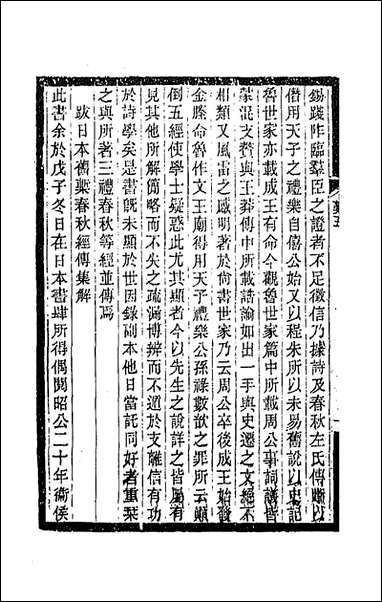 錫踐阼臨羣臣之證者不足徵信乃據詩及春秋左氏傳斷以
僭用天子之禮樂自僖公始又以程朱所以未易舊說以史記
魯世家亦載成王有命今觀魯世家篇中所載周公事詞議皆
蒙混支贅與王莽傳中所載誥諭如出一手與史遷之文絕不
相類又風雷之感明著於尚書世家乃云周公卒後成王始發
金縢命魯作文王廟得用天子禮樂公孫祿數歆之罪所云顚
倒五經使學士疑惑此尤其顯者今以先生之說詳之皆屬有
見其他所解簡略而不失之疏漏博辨而不適於支離信有功
於詩學矣是書旣未顯於世因錄副本他日當託同好者重栞
之與所著三禮春秋等經並傳焉
跋日本舊槀春秋經傳集解
此書余於戊子冬日在日本書肆所得偶閱昭公二十年衞侯